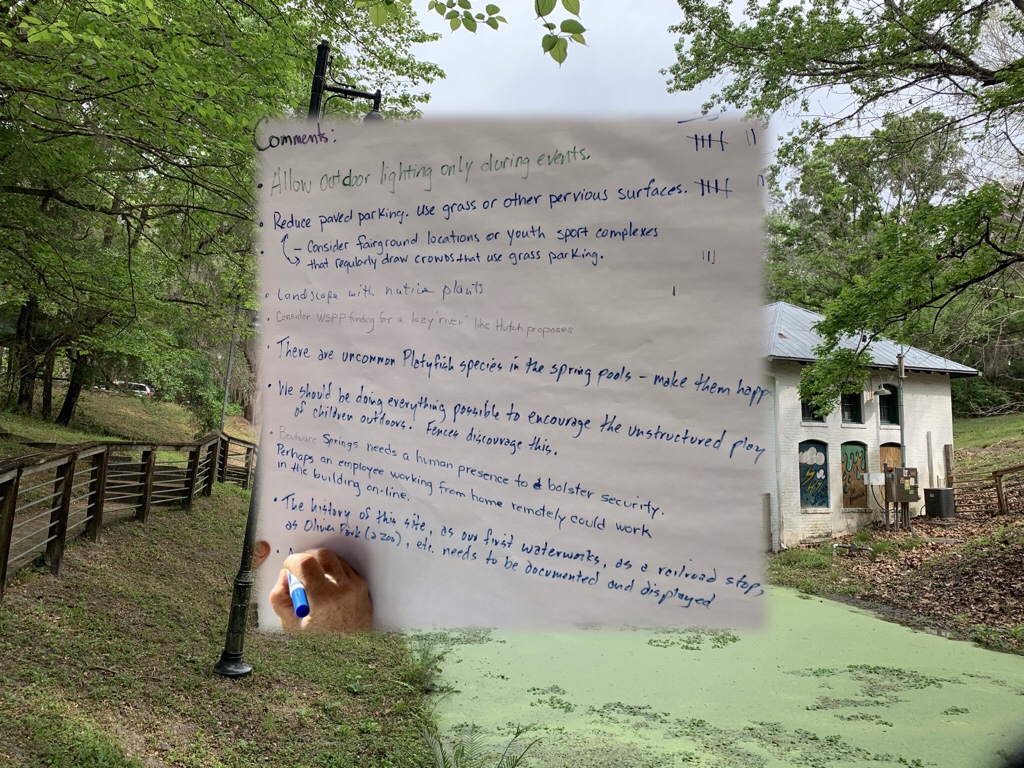 Comments:
• Allow outdoor lighting only during events.
• Reduce paved parking. Use grass or other pervious surfaces.
– Consider fairground locations or youth sport complexes
that regularly draw crowds that use grass parking.
• Landscape with native plants
• Consider WSPP funding for a lazy "river" like Hutch proposes
• There are uncommon Platyfish species in the spring pools – make them happ
• We should be doing everything possible to encourage the unstructured play
of children outdoors. Fences discourage this.
• Boulware Springs needs a human presence to bolster security.
Perhaps an employee working from home remotely could work
in the building on-line.
• The history of this site, as our first waterworks, as a railroad stop,
as Oliver Park (a zoo), etc. needs to be documented and displayed